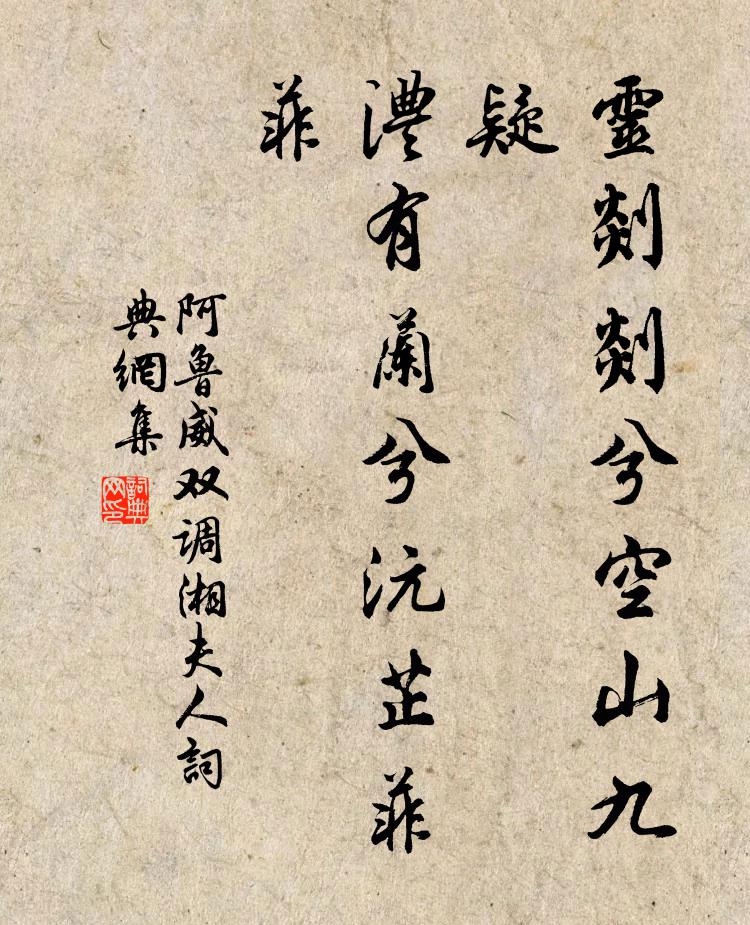 靈剡剡兮空山九
疑
澧有蘭兮沅芷菲
菲
阿魯威双调湘夫人詞
典網集
詞典
网印